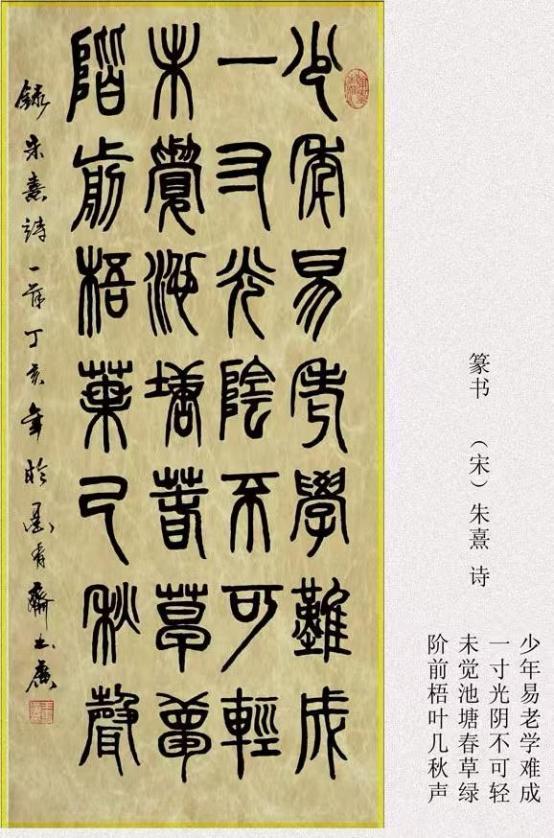 少年易老學難成
一寸光陰不可輕
未覺池塘春草夢
階前梧葉已秋聲
錄朱熹詩一首丁亥年於墨齋
篆书 （宋）朱熹 诗
少年易老学难成
一寸光阴不可轻
未觉池塘春草绿
阶前梧叶几秋声